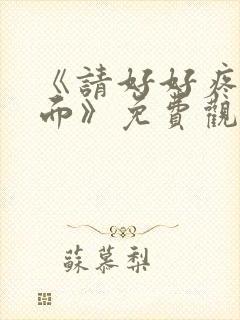 《請好好疼
而》免費觀
蘇慕梨